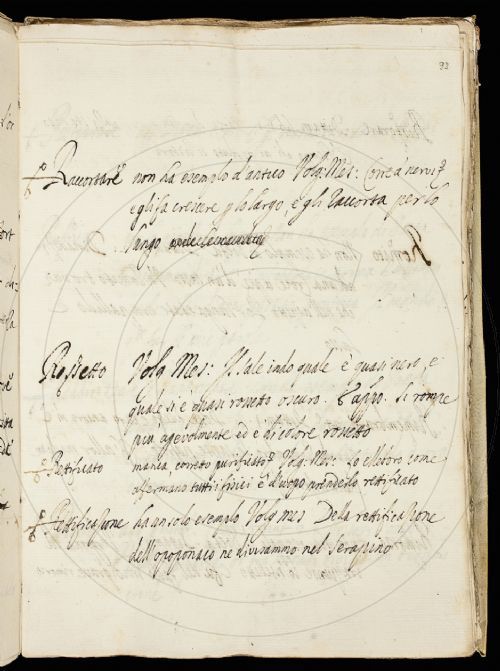 93
Raccortare non ha esempio d'antico Volg: Mes:
egli fa crescere p lo largo, e gli raccorta per lo
lungo
Rossetto Volg. Mes: Il sale indo quale è quasi nero, e
quale si è quasi rossetto oscuro. E appo. si rompe
piu agevolmente ed è di colore rossetto
Rettificato manca corretto purificato Volg. Mes: Lo elleboro come
affermano tutti i fisici è d'uopo prenderlo rettificato
Rettificazione ha un solo esempio Volg mes Dela rettificazione
dell'opoponaco ne divisammo nel serapino